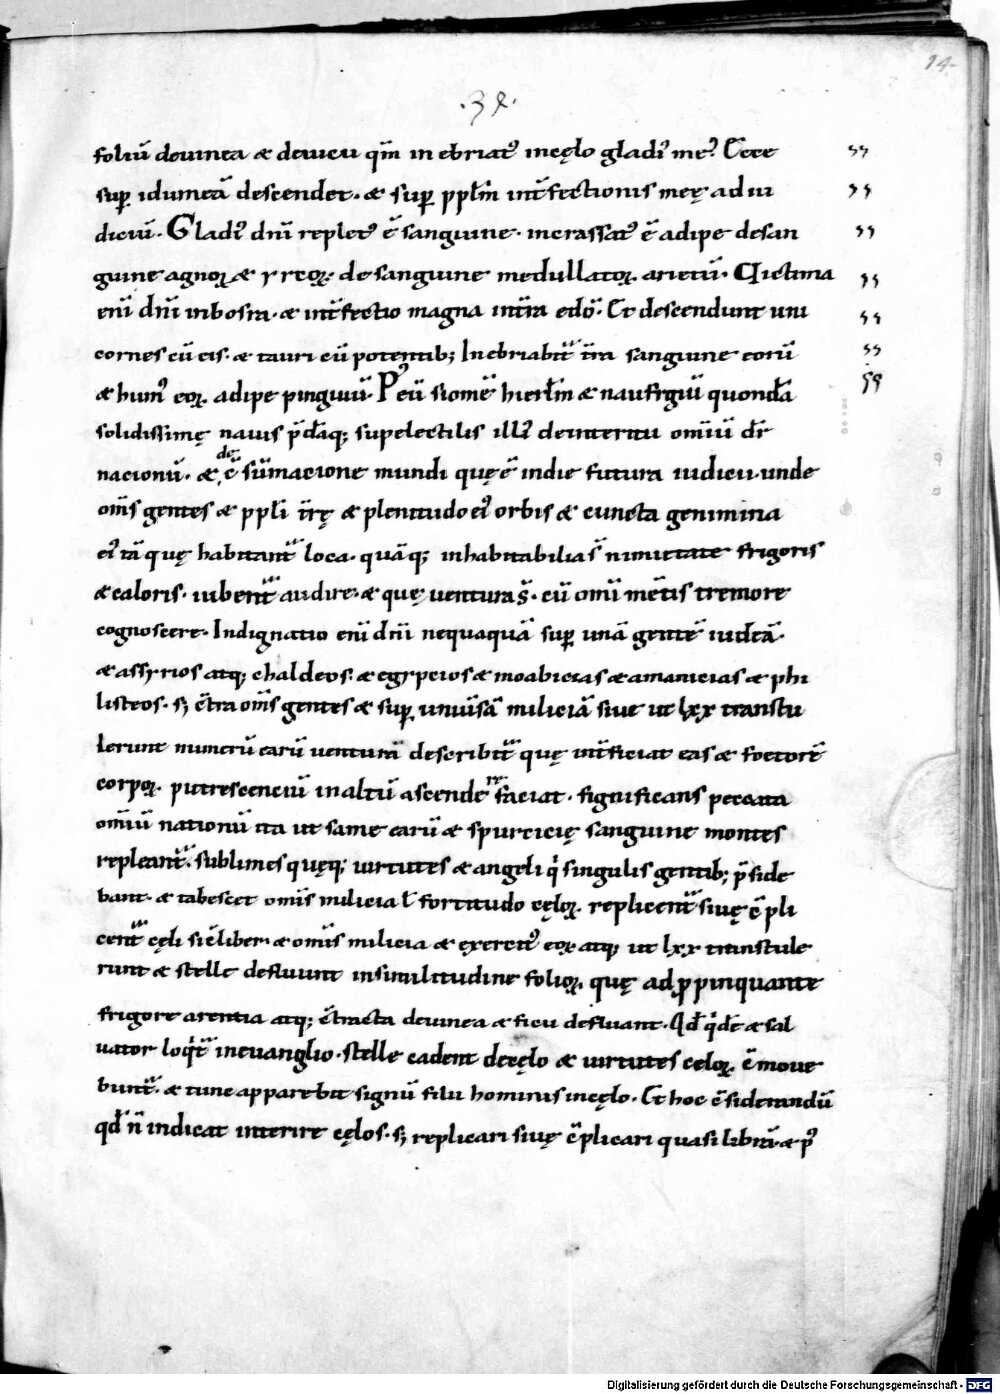 14
·34·
foliū deuinea & deuicu qm̄ inebriat' incęlo gladi' me'. Ecce
sup̱ idumeā descendet. & sup̱ pplm̄ int̄fectionis meę ad iu
diciū. Gladi' dnī replet' ē sanguine. incrassat' ē adipe desan
guine agnoꝝ & yrcoꝝ. desanguine medullatoꝝ arietū. Uictima
enī dnī inbosra. & int̄fectio magna int̄ra edō. Et descendunt uni
cornes cū eis. & tauri cū potentib; Inebriabit̄ t̄ra sanguine eorū
& hum' eoꝝ adipe pinguiū. P' eū siomē hierl̄m & naufrgiū quondā
solidissimę nauis p̄daq; supelectilis illi' deinteritu omīū dr̄
nacionū. & de c̄sūmacione mundi quę ē indie futura iudicii. unde
om̄s gentes & ppl̄i t̄rę & plenitudo ei' orbis & cuncta genimina
ei' tā quę habitant̄ loca. quāq; inhabitabilia s̄ nimietate frigoris
& caloris. iubent̄ audire. & quę uentura s̄. cū omī mētis tremore
cognoscere. Indignatio enī dnī nequaquā sup̱ unā gentē iudeā.
& assyrios atq; chaldeos. & egypcios & moabitas & amanicias & phi
listeos. s; c̄tra om̄s gentes & sup̱ uniūsā miliciā siue ut lxx transtu
lerunt numerū earū uenturā describit̄ quę int̄ficiat eas & foetorē
corpoꝝ putrescenciū inaltū ascendere faciat. significans peccata
omīū nationū ita ut sanie earū & spurcicię sanguine montes
repleant̄. sublimes quęq; uirtutes & angeli qi singulis gentib; p̄side
bant. & tabescet omīs milicia ł fortitudo cęloꝝ. replicent̄ siuę c̄pli
cent̄ cęli sic̄ liber. & omīs milicia & exercit' eoꝝ atq; ut lxx transtule
runt & stelle defluunt insimilitudine folioꝝ. quę adp̱pinquante
frigore arentia atq; c̄tracta deuinea & ficu defluant. Qd̄ qidē & sal
uator loqt̄ ineuanglio. stelle cadent decęlo & uirtutes celoꝝ c̄moue
bunt̄. & tunc apparebit signū filii hominis incęlo. Et hoc c̄siderandū
qd̄ n̄ indicat interire cęlos. s; replicari siuę c̄plicari quasi librū. & p'
Digitalisierung gefördert durch die Deutsche Forschungsgemeinschaft - DFG